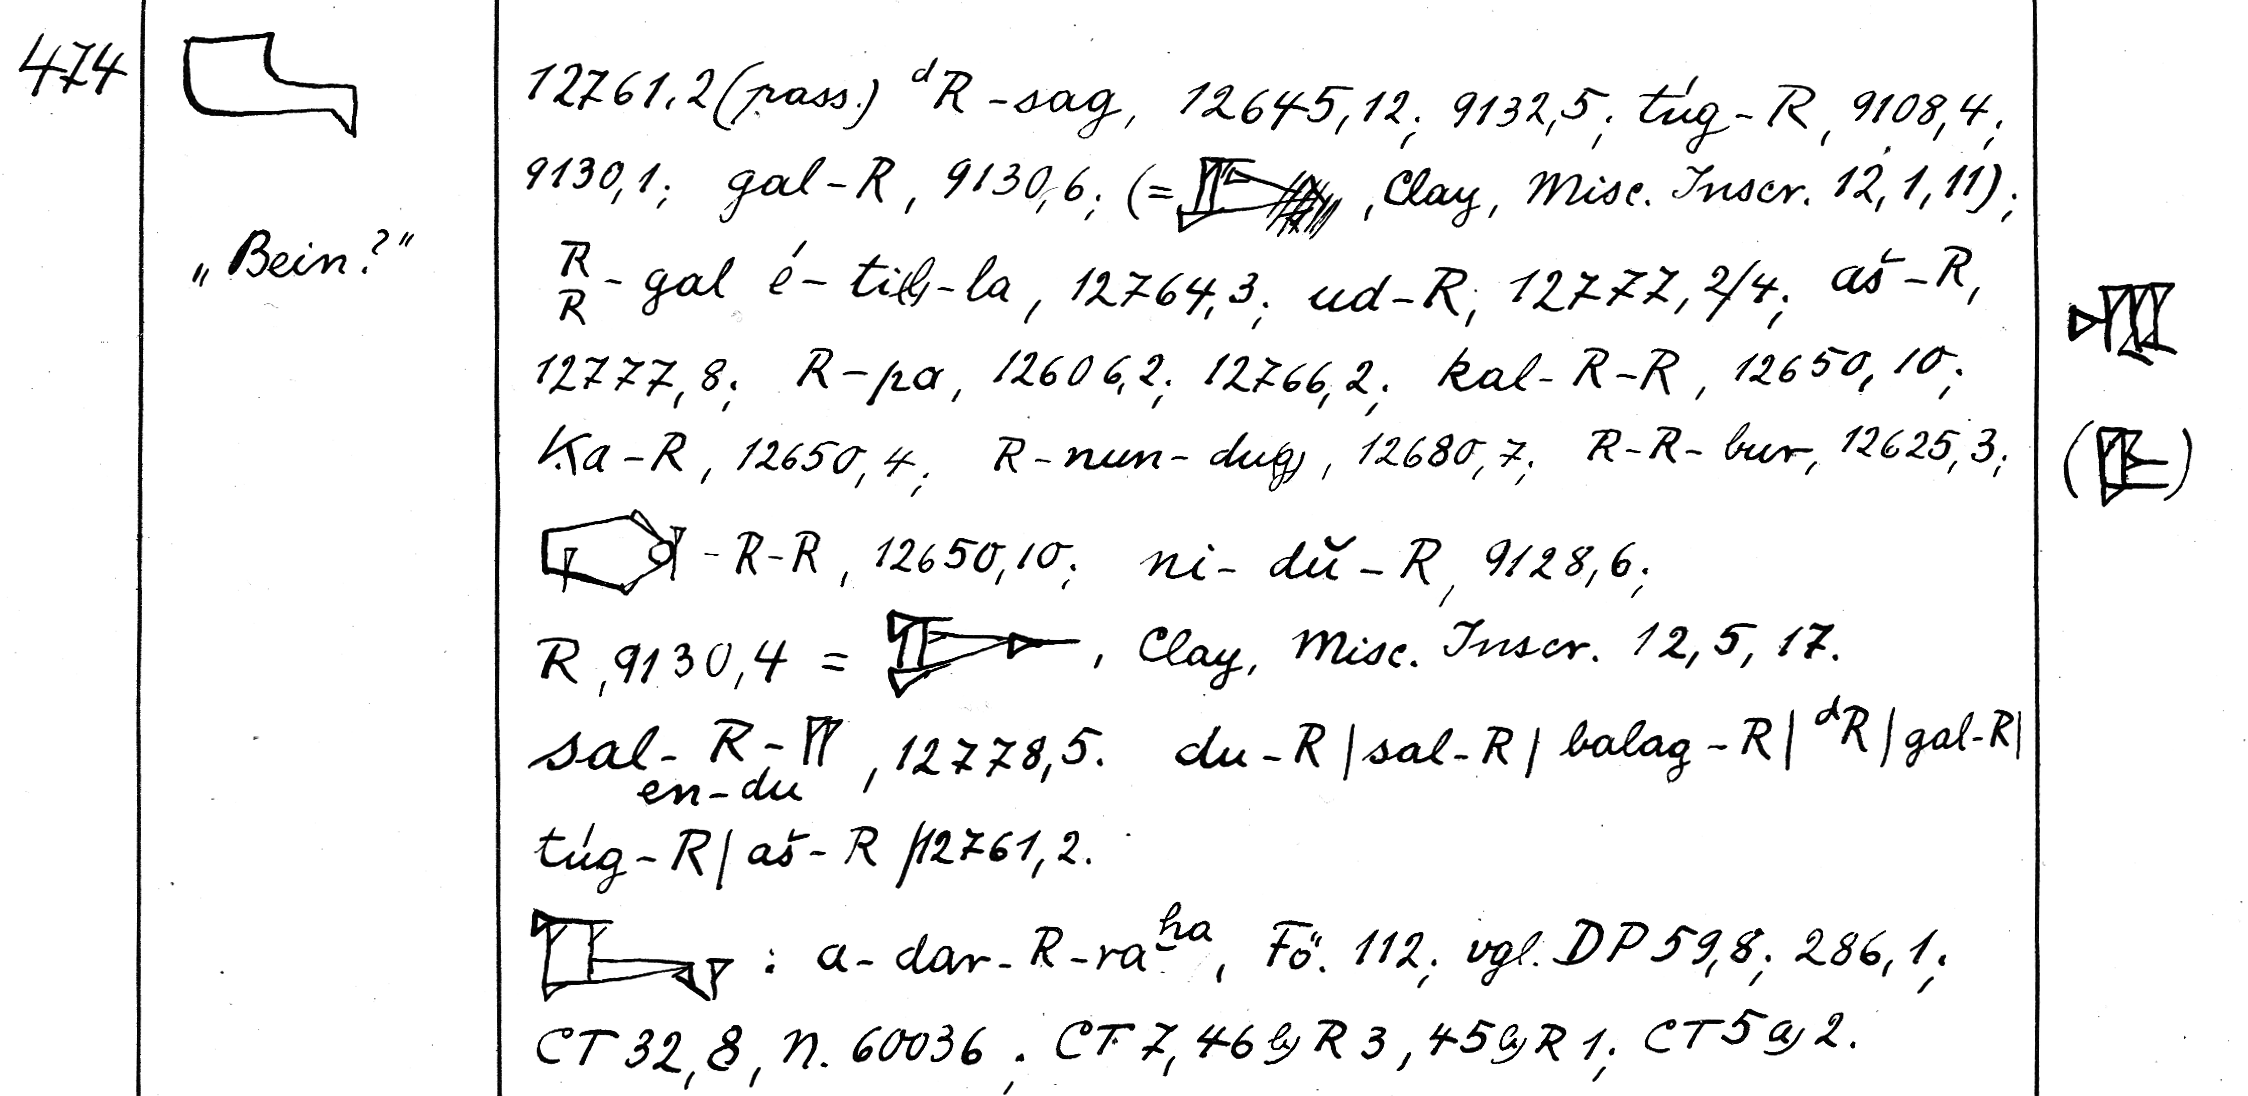 474
„Bein?“
12761,2 (pass.) ᵈR-sag, 12645,12; 9132,5; túg-R, 9108,4;
9130,1; gal-R, 9130,6; (= , Clay, Misc. Inscr. 12,1,11);
R
R -gal é-til-la, 12764,3; ud-R, 12777,2/4; aš-R,
12777,8; R-pa, 12606,2; 12766,2; kal-R-R, 12650,10;
Ka-R, 12650,4; R-nun-dug, 12680,7; R-R-bur, 12625,3;
-R-R, 12650,10; ni-dŭ-R, 9128,6;
R, 9130,4 = , Clay, Misc. Inscr. 12,5,17.
sal-R- , 12778,5. du-R | sal-R | balag-R | ᵈR | gal-R |
en-du
túg-R | aš-R | 12761,2.
: a-dar-R-raḫᵃ, Fö. 112; vgl. DP 59,8; 286,1;
CT 32,8, N. 60036; CT 7,46 b) R 3, 45 a) R 1; CT 5 a) 2.
( )